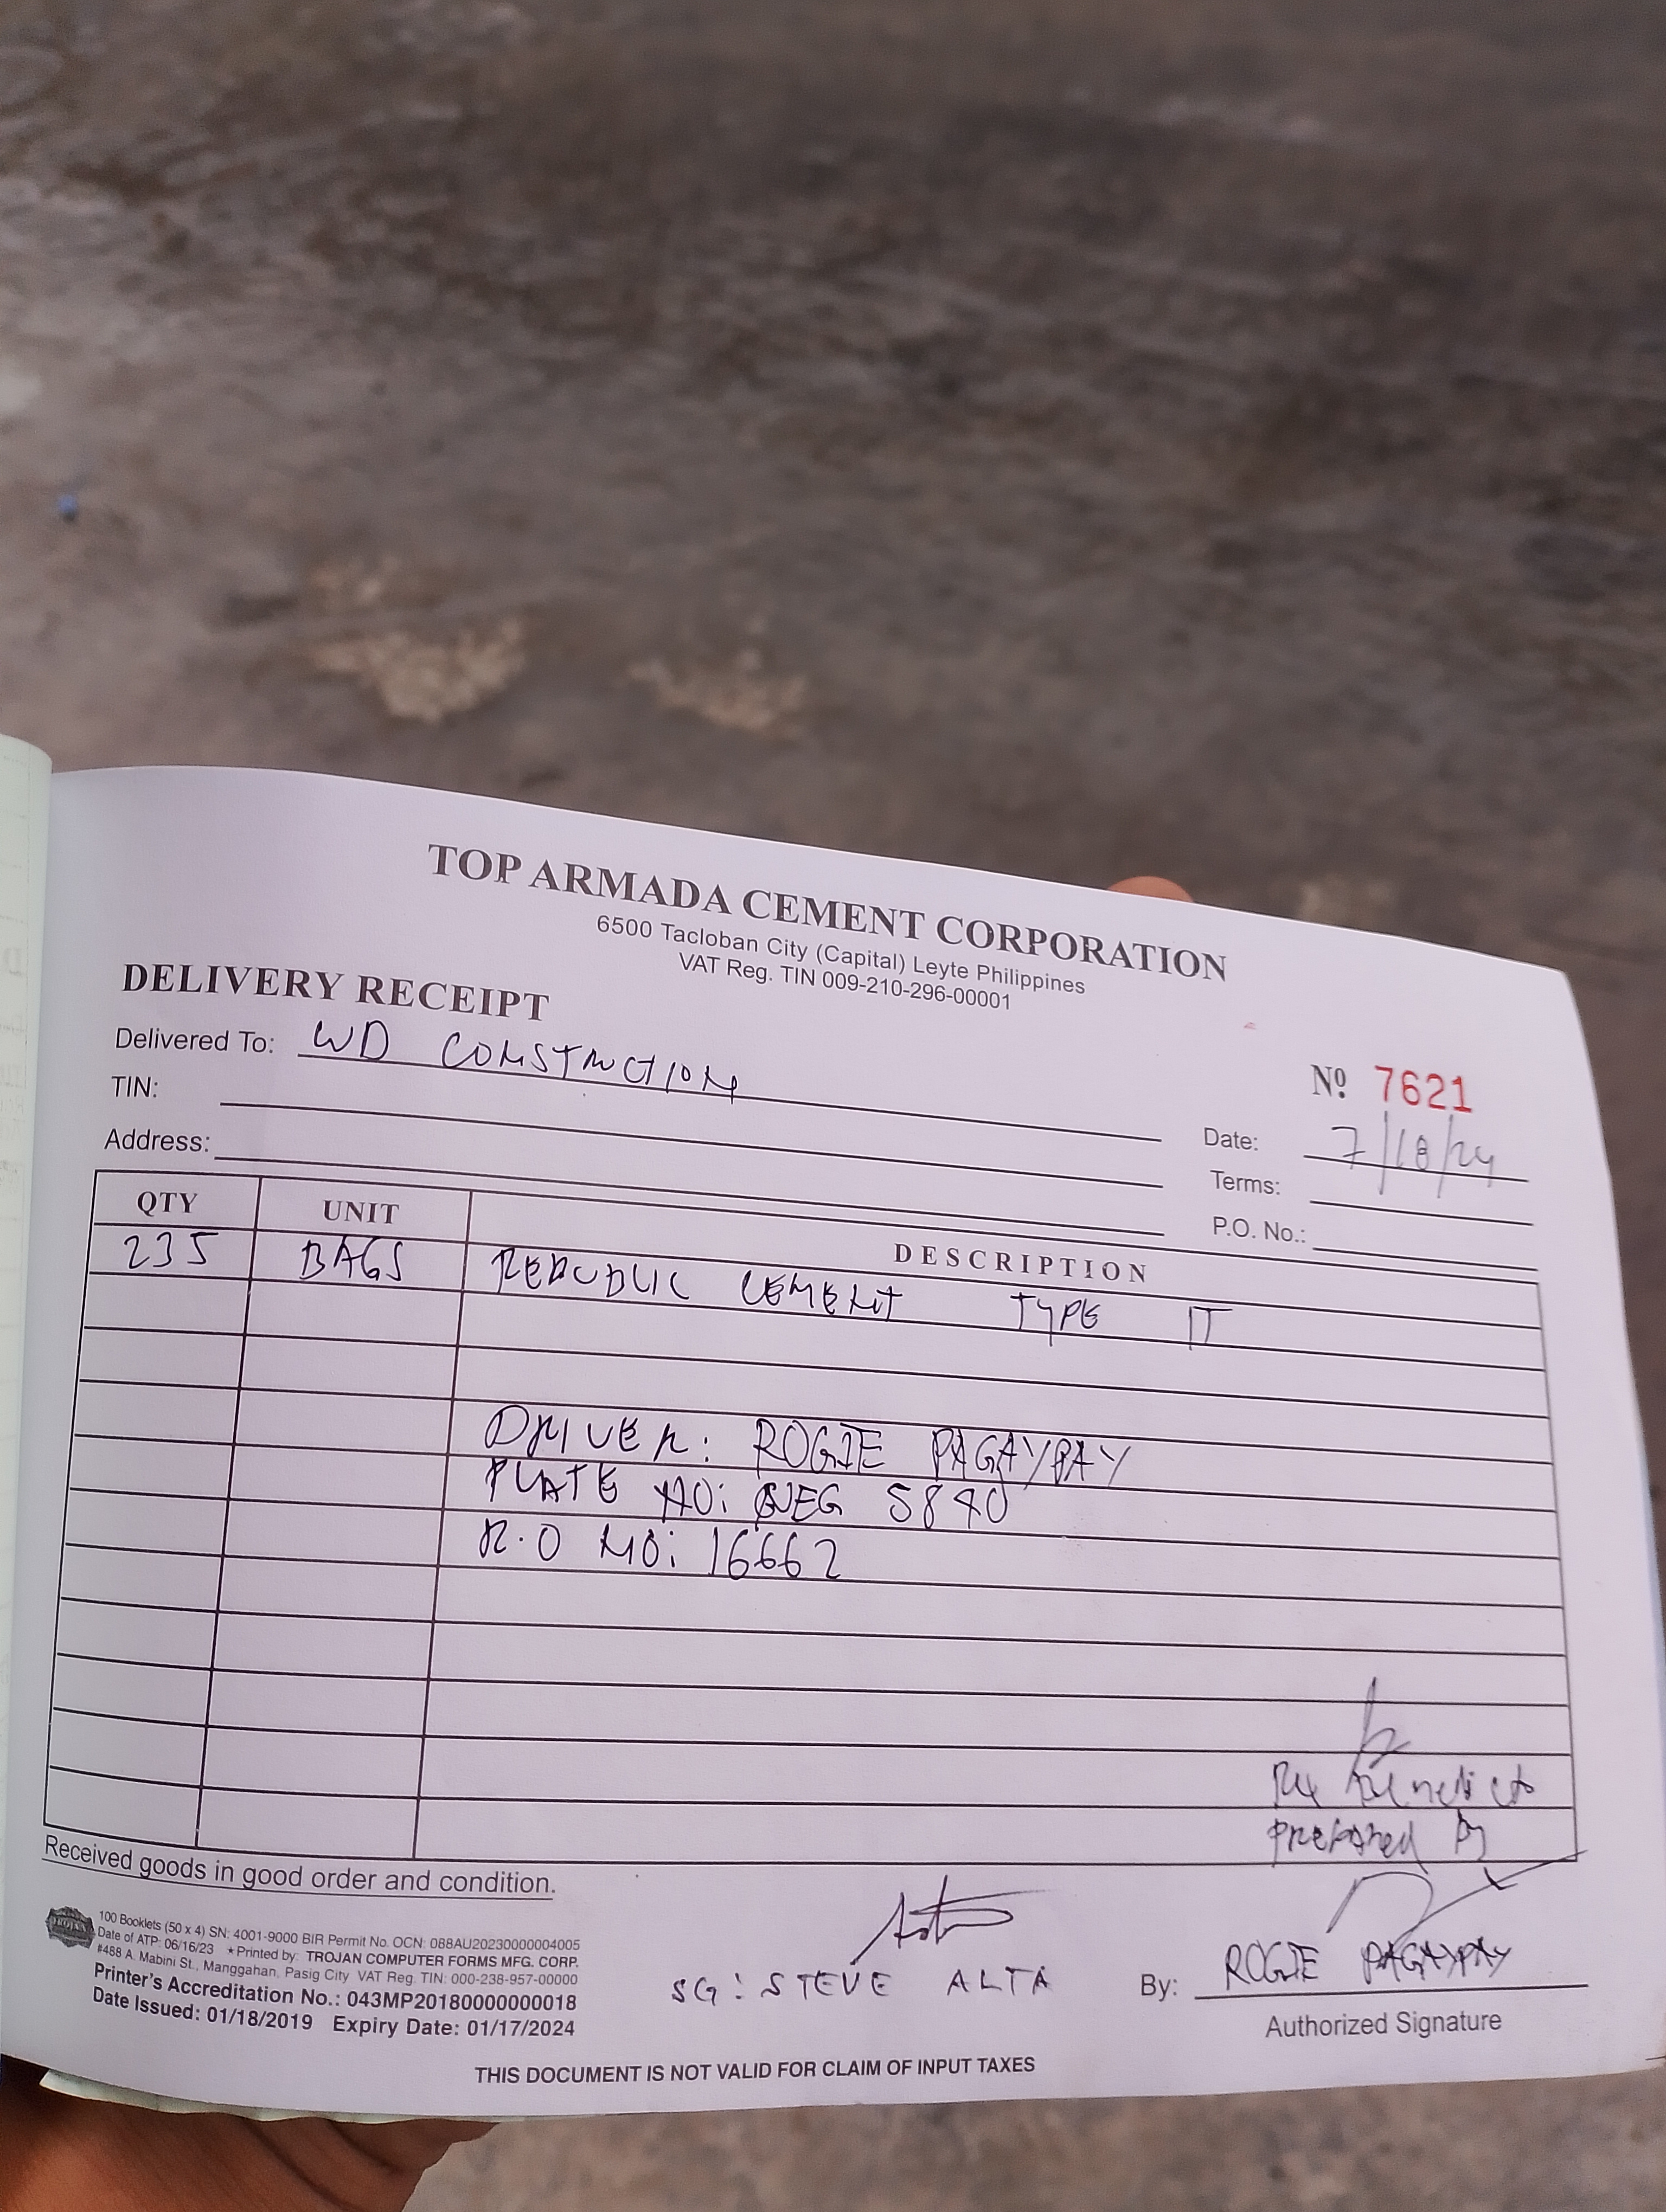 TOP ARMADA CEMENT CORPORATION
6500 Tacloban City (Capital) Leyte Philippines
VAT Reg. TIN 009-210-296-00001
DELIVERY RECEIPT
Delivered To: WD CONSTRUCTION
Nº 7621
TIN:
Date: 7/18/24
Address:
Terms:
P.O. No.:
QTY UNIT DESCRIPTION
235 BAGS REPUBLIC CEMENT TYPE IT
DRIVER: ROGIE PAGAYPAY
PLATE NO: 5840
R.O NO: 16662
Benedicto
prepared by
Received goods in good order and condition.
100 Booklets (50 x 4) SN: 4001-9000 BIR Permit No. OCN: 088AU20230000004005
Date of ATP: 06/16/23 ★Printed by: TROJAN COMPUTER FORMS MFG. CORP.
#488 A. Mabini St., Manggahan, Pasig City VAT Reg. TIN: 000-238-957-00000
Printer's Accreditation No.: 043MP20180000000018
Date Issued: 01/18/2019 Expiry Date: 01/17/2024
SG: STEVE ALTA
By: ROGIE PAGAYPAY
Authorized Signature
THIS DOCUMENT IS NOT VALID FOR CLAIM OF INPUT TAXES